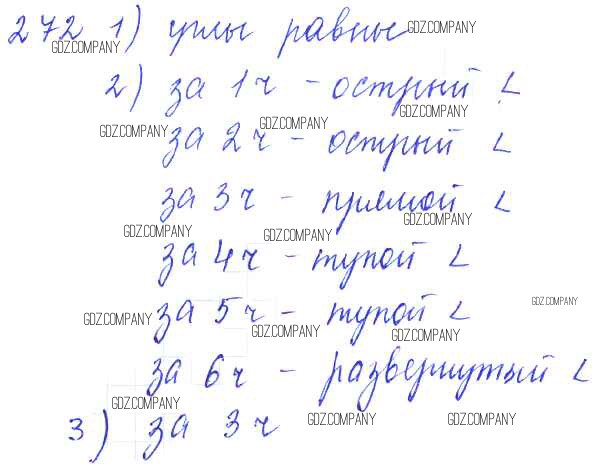 272 1) углы равные
GDZ.COMPANY GDZ.COMPANY
2) за 1ч - острый ∠
GDZ.COMPANY
за 2ч - острый ∠
GDZ.COMPANY GDZ.COMPANY
за 3ч - прямой ∠
GDZ.COMPANY
GDZ.COMPANY GDZ.COMPANY
за 4ч - тупой ∠
за 5ч - тупой ∠
GDZ.COMPANY GDZ.COMPANY GDZ.COMPANY GDZ.COMPANY
за 6ч - развернутый ∠
GDZ.COMPANY GDZ.COMPANY GDZ.COMPANY
3) за 3ч